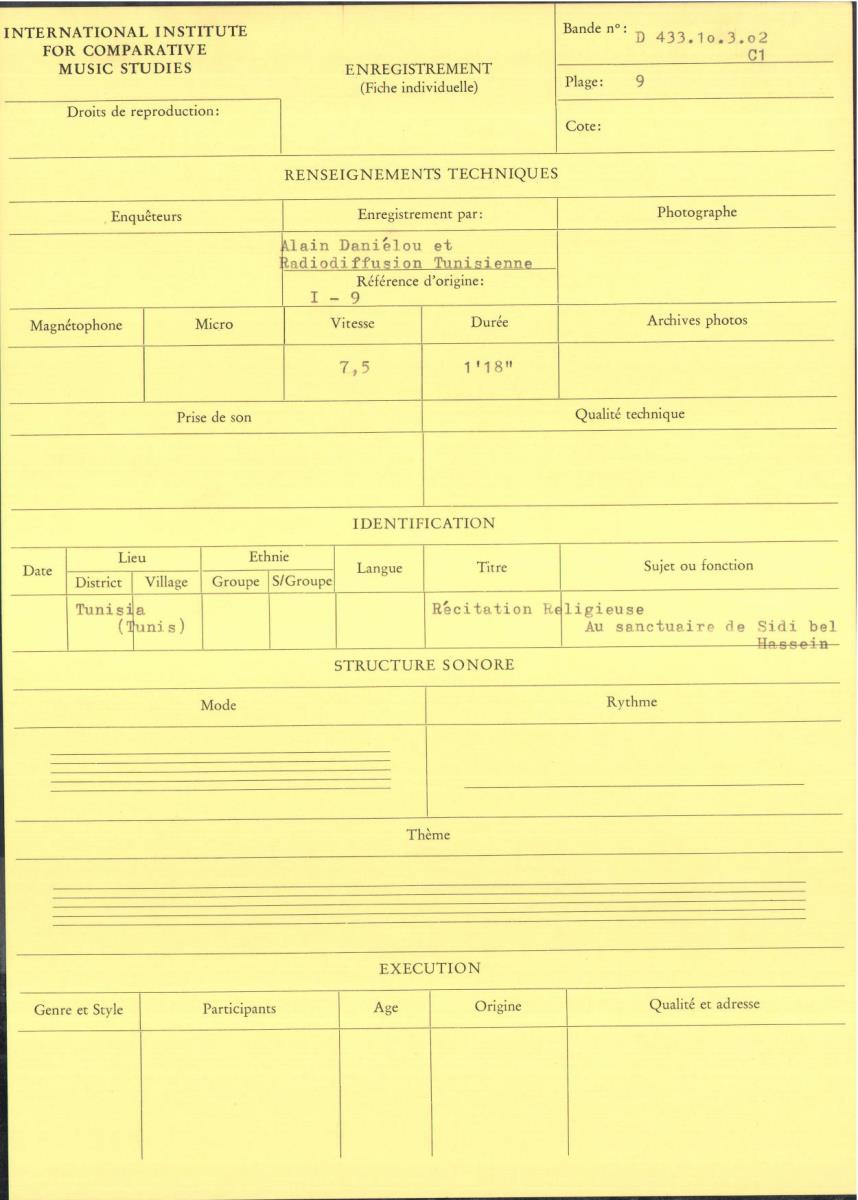 INTERNATIONAL INSTITUTE
FOR COMPARATIVE
MUSIC STUDIES
Droits de reproduction:
ENREGISTREMENT
(Fiche individuelle)
Bande n°: D 433.1o.3.o2
C1
Plage: 9
Cote:
RENSEIGNEMENTS TECHNIQUES
Enquêteurs
Enregistrement par:
Photographe
Alain Daniélou et
Radiodiffusion Tunisienne
Référence d'origine:
I - 9
Magnétophone
Micro
Vitesse
Durée
Archives photos
7,5
1'18"
Prise de son
Qualité technique
IDENTIFICATION
Date
Lieu
District
Village
Ethnie
Groupe
S/Groupe
Langue
Titre
Sujet ou fonction
Tunisia
(Tunis)
Récitation Religieuse
Au sanctuaire de Sidi bel
Hassein
STRUCTURE SONORE
Mode
Rythme
Thème
EXECUTION
Genre et Style
Participants
Age
Origine
Qualité et adresse